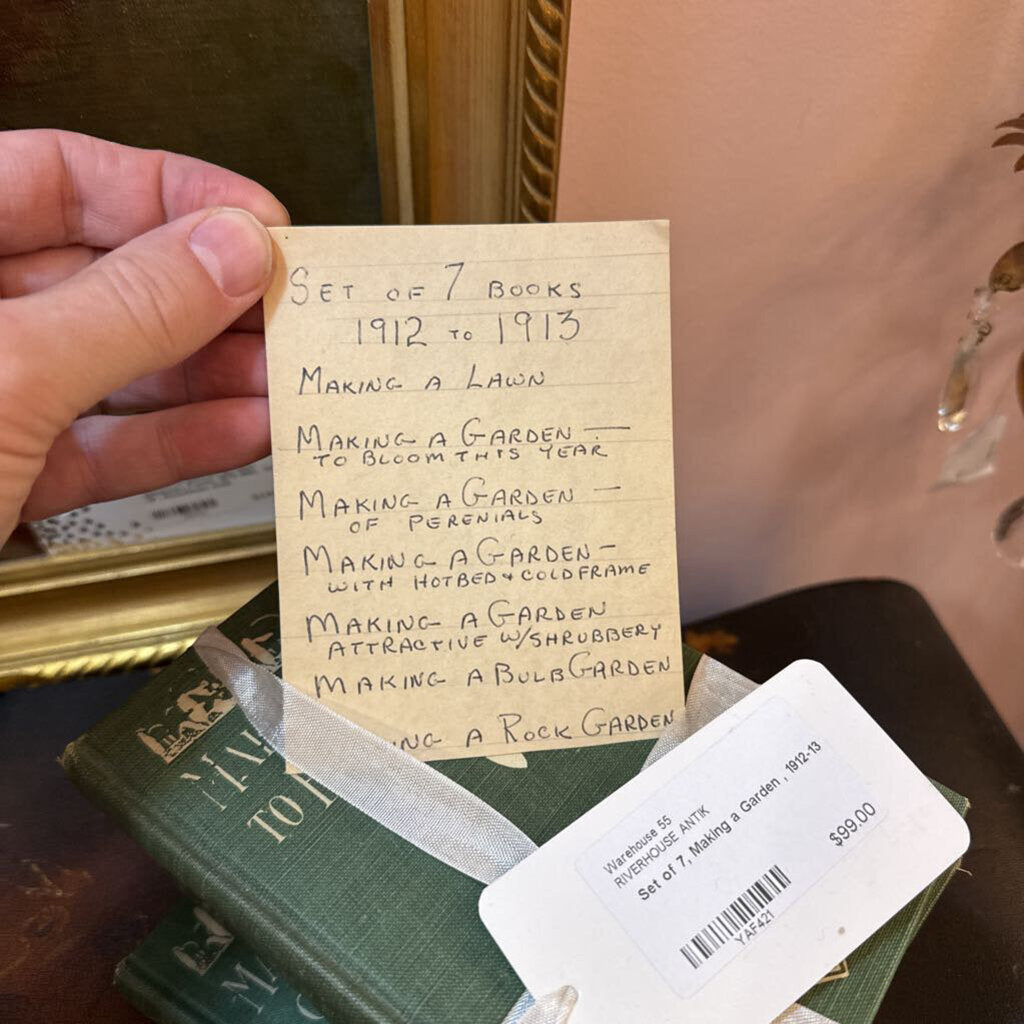 SET OF 7 BOOKS
1912 TO 1913
MAKING A LAWN
MAKING A GARDEN —
TO BLOOM THIS YEAR
MAKING A GARDEN —
OF PERENIALS
MAKING A GARDEN –
WITH HOTBED & COLDFRAME
MAKING A GARDEN
ATTRACTIVE W/SHRUBBERY
MAKING A BULB GARDEN
A ROCK GARDEN
TO
Warehouse 55
RIVERHOUSE ANTIK
Set of 7, Making a Garden , 1912-13
$99.00
YAF421